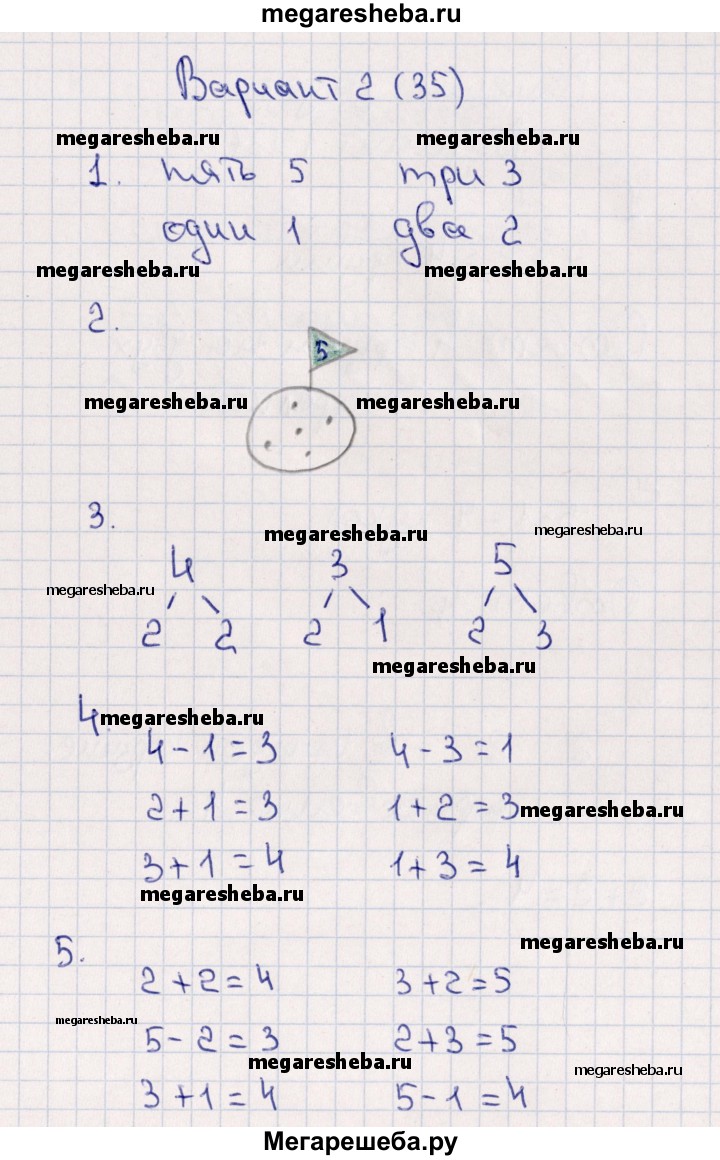 megaresheba.ru
Вариант 2 (35)
megaresheba.ru megaresheba.ru
1. пять 5 три 3
один 1 два 2
megaresheba.ru megaresheba.ru
2.
5
megaresheba.ru megaresheba.ru
3.
megaresheba.ru megaresheba.ru
4 3 5
megaresheba.ru
2 2 2 1 2 3
megaresheba.ru
4. megaresheba.ru
4 - 1 = 3 4 - 3 = 1
2 + 1 = 3 1 + 2 = 3 megaresheba.ru
3 + 1 = 4 1 + 3 = 4
megaresheba.ru
5. megaresheba.ru
2 + 2 = 4 3 + 2 = 5
megaresheba.ru
5 - 2 = 3 2 + 3 = 5
megaresheba.ru megaresheba.ru
3 + 1 = 4 5 - 1 = 4
Мегарешеба.ру